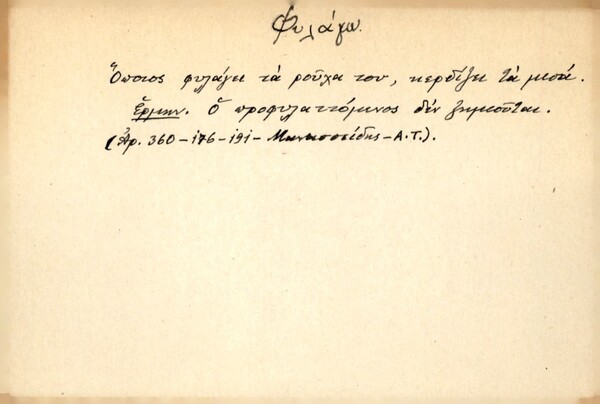 Φυλάγω.
Ὅποιος φυλάγει τὰ ροῦχα του, κερδίζει τὰ μισά.
Ἑρμην. Ὁ προφυλαττόμενος δὲν ζημιοῦται.
(Ἀρ. 360-176-191-Μανασσείδης-Α.Τ.).